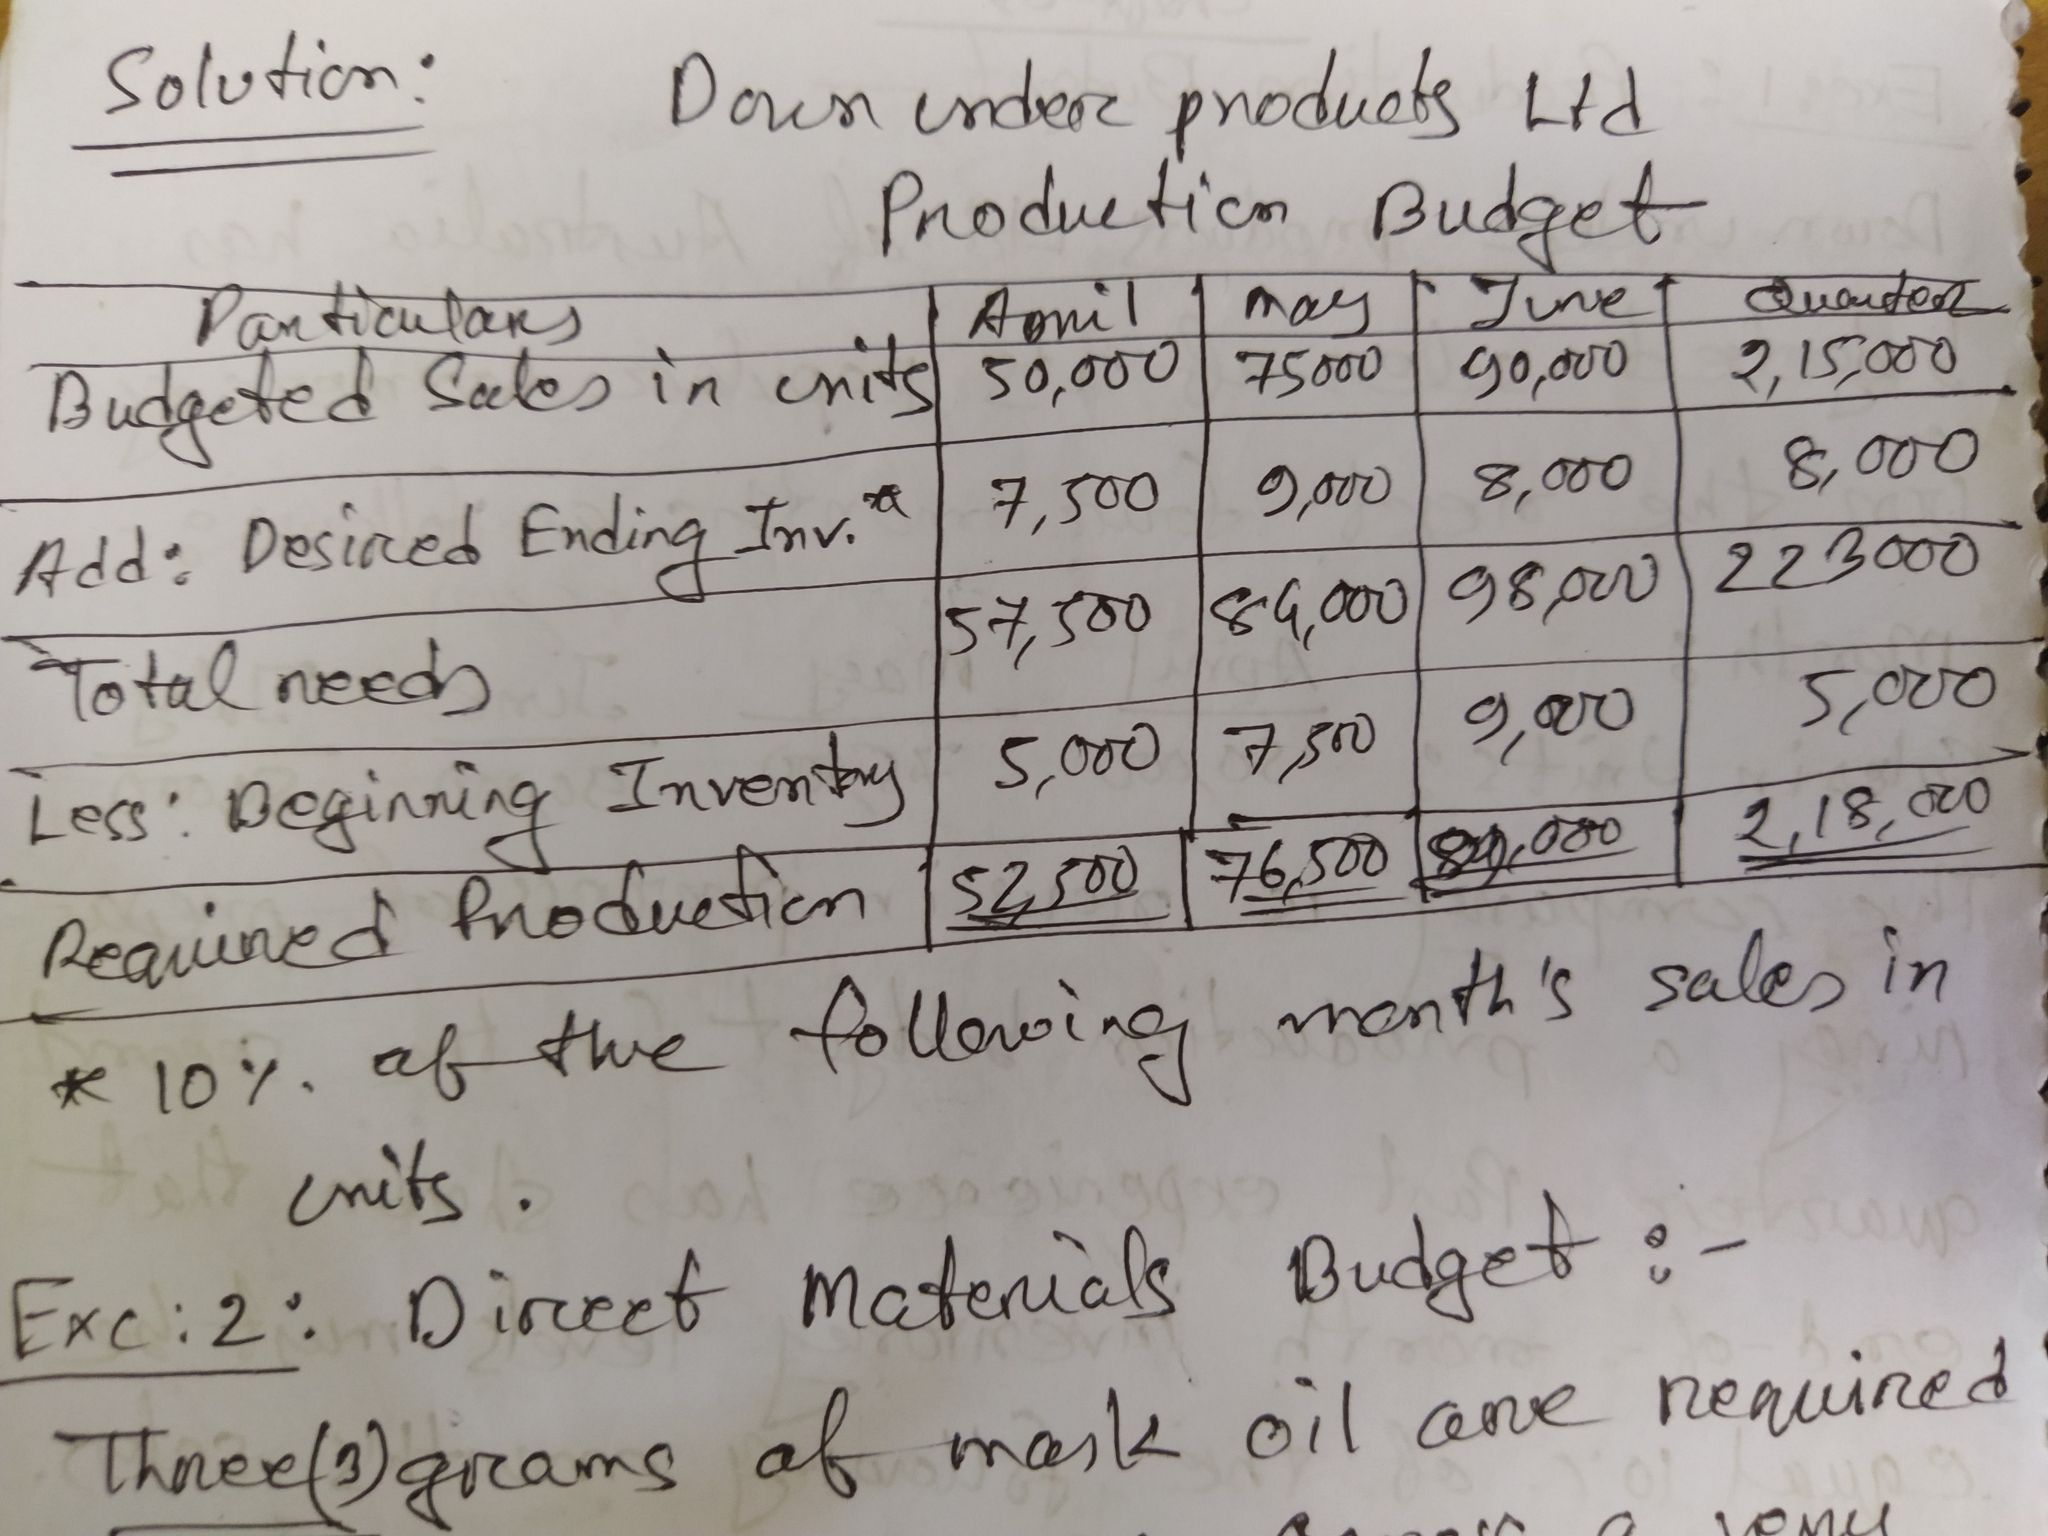 Solution: Down under products Ltd
Production Budget
Particulars April may June Quarter
Budgeted Sales in units 50,000 75000 90,000 2,15,000
Add: Desired Ending Inv.* 7,500 9,000 8,000 8,000
Total needs 57,500 84,000 98,000 223000
Less: Beginning Inventory 5,000 7,500 9,000 5,000
Required Production 52,500 76,500 89,000 2,18,000
* 10%. of the following month's sales in
units.
Exc: 2: Direct Materials Budget :-
Three(3) grams of mask oil are required
a very